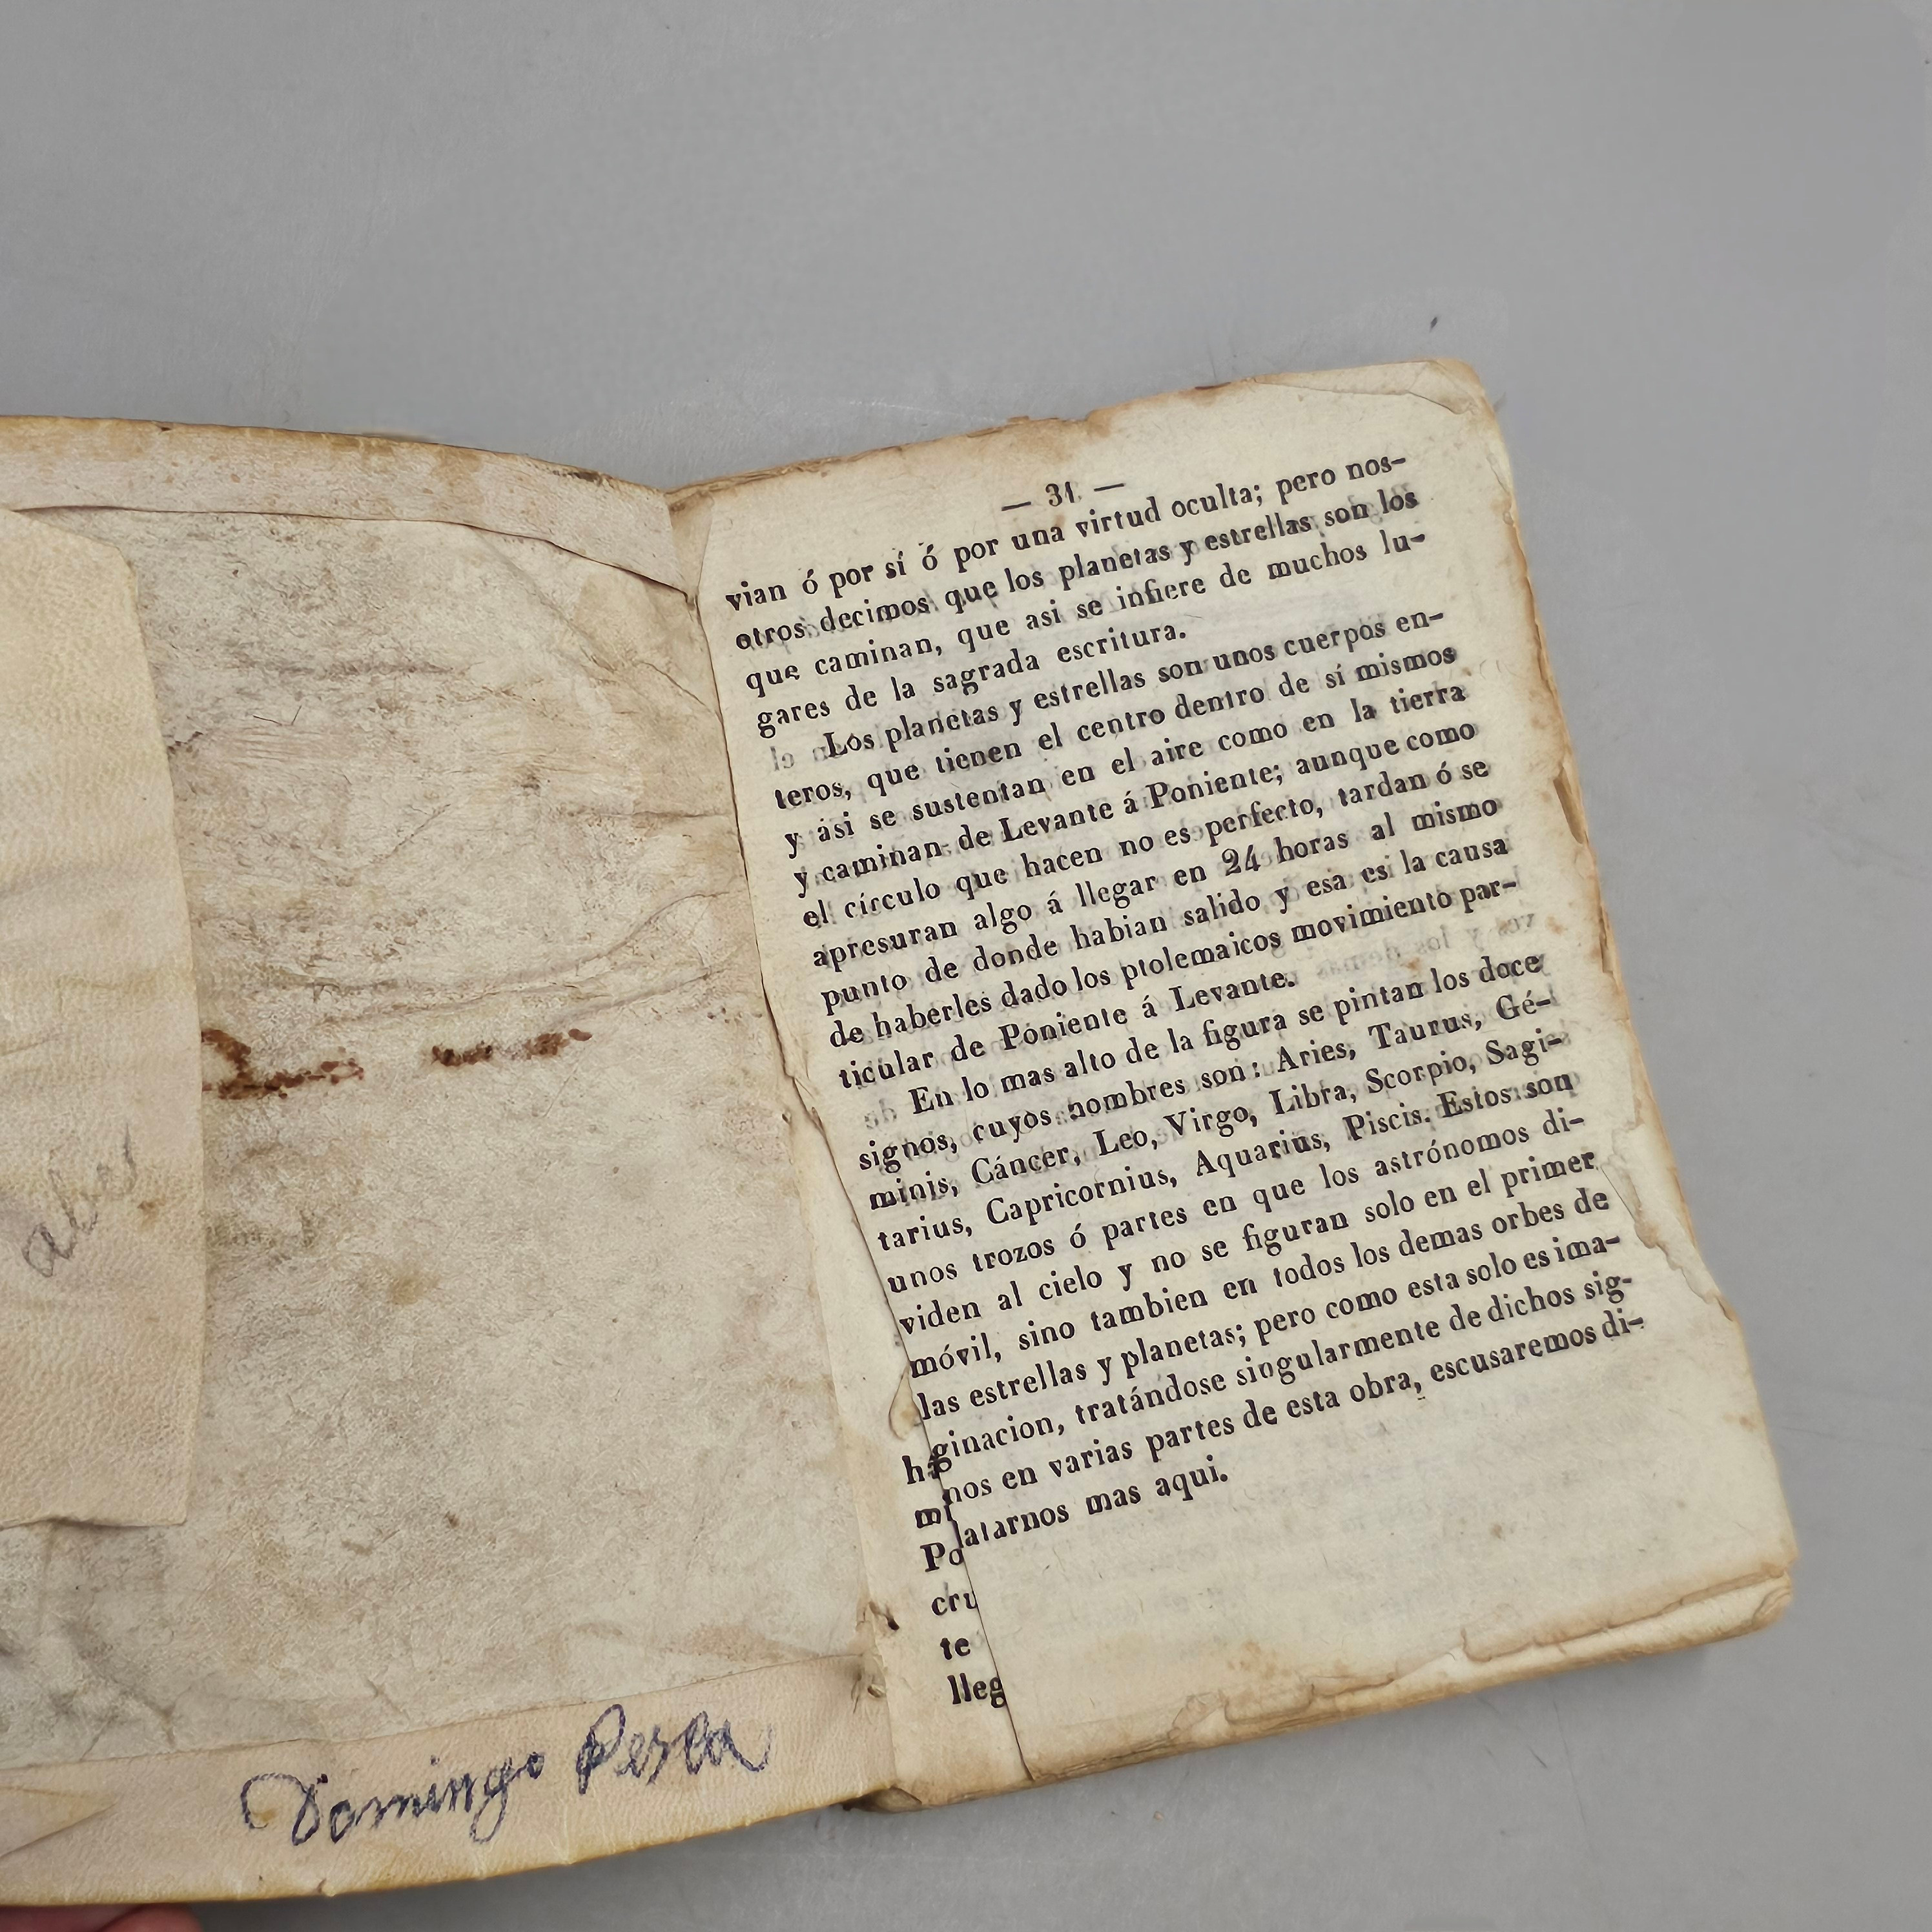 — 31 —
vian ó por sí ó por una virtud oculta; pero nos-
otros decimos que los planetas y estrellas son los
que caminan, que asi se infiere de muchos lu-
gares de la sagrada escritura.
Los planetas y estrellas son unos cuerpos en-
teros, que tienen el centro dentro de sí mismos
y asi se sustentan en el aire como en la tierra
y caminan de Levante á Poniente; aunque como
el círculo que hacen no es perfecto, tardan ó se
apresuran algo á llegar en 24 horas al mismo
punto de donde habian salido y esa es la causa
de haberles dado los ptolemaicos movimiento par-
ticular de Poniente á Levante.
En lo mas alto de la figura se pintan los doce
signos, cuyos nombres son: Aries, Taurus, Gé-
minis, Cáncer, Leo, Virgo, Libra, Scorpio, Sagi-
tarius, Capricornius, Aquarius, Piscis. Estos son
unos trozos ó partes en que los astrónomos di-
viden al cielo y no se figuran solo en el primer
móvil, sino tambien en todos los demas orbes de
las estrellas y planetas; pero como esta solo es ima-
ginacion, tratándose singularmente de dichos sig-
nos en varias partes de esta obra, escusaremos di-
latarnos mas aqui.
te
lleg
Domingo